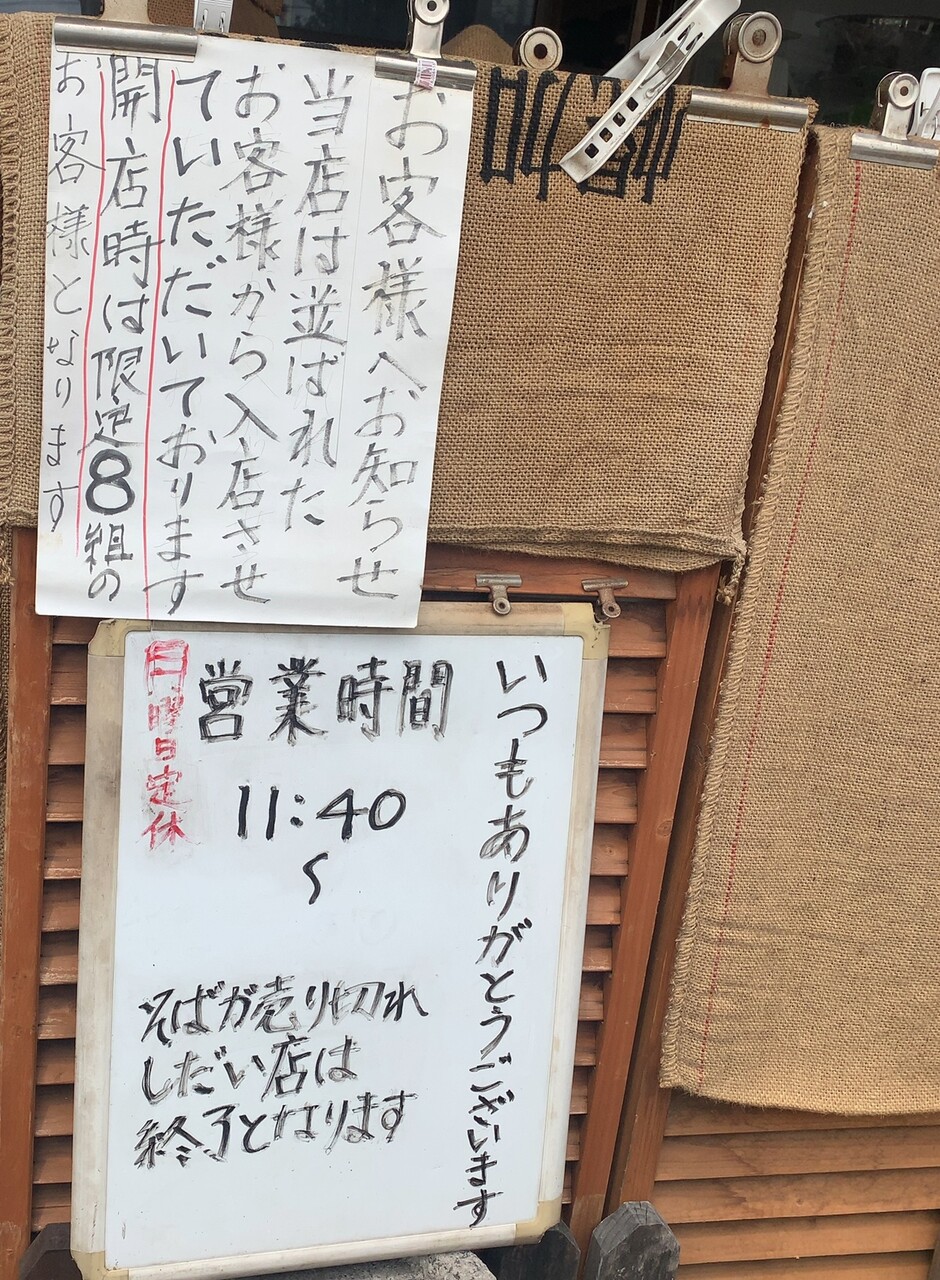 お客様へお知らせ
当店は並ばれた
お客様から入店させ
ていただいております
開店時は限定8組の
お客様となります
いつもありがとうございます
営業時間
11:40
〜
そばが売り切れ
しだい店は
終了となります
曜日定休